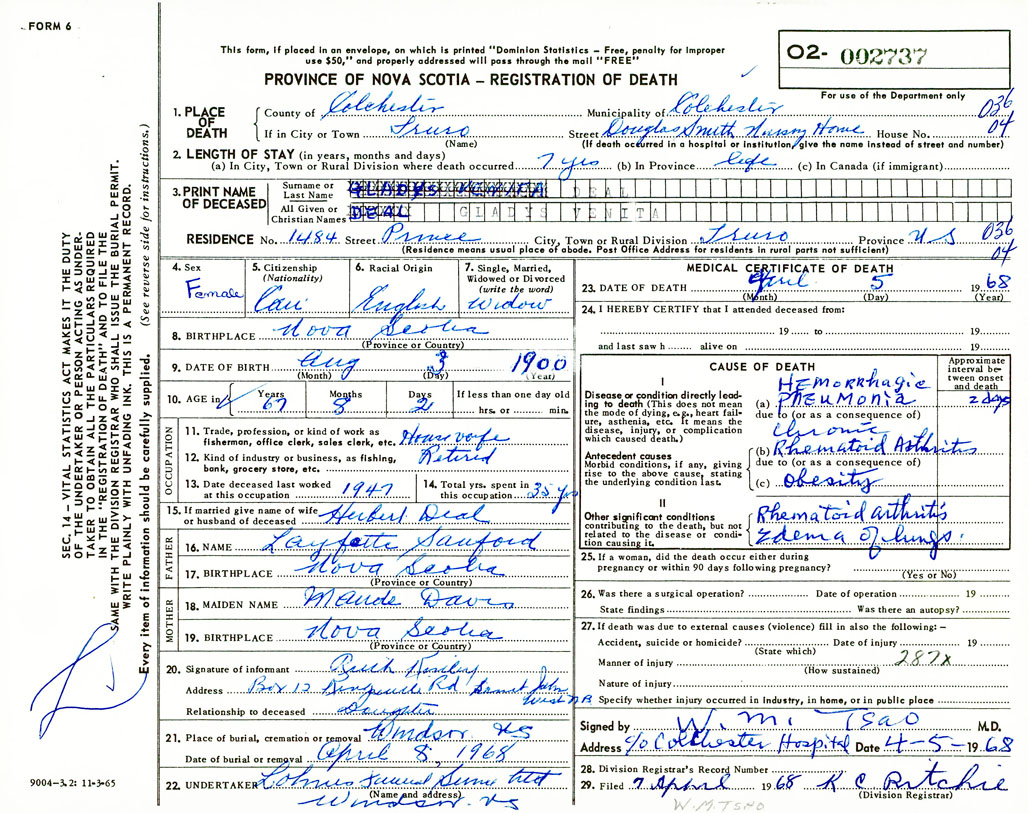 FORM 6
This form, if placed in an envelope, on which is printed "Dominion Statistics – Free, penalty for improper
use $50," and properly addressed will pass through the mail "FREE"
PROVINCE OF NOVA SCOTIA – REGISTRATION OF DEATH
O2- 002737
For use of the Department only
036
04
1. PLACE OF DEATH
County of Colchester Municipality of Colchester
If in City or Town Truro Street Douglas Smith Nursing Home House No.
(Name) (If death occurred in a hospital or institution, give the name instead of street and number)
2. LENGTH OF STAY (in years, months and days)
(a) In City, Town or Rural Division where death occurred 7 yrs (b) In Province life (c) In Canada (if immigrant)
3. PRINT NAME OF DECEASED
Surname or Last Name GLADYS DEAL
All Given or Christian Names DEAL GLADYS VENITA
RESIDENCE No. 1484 Street Prince City, Town or Rural Division Truro Province NS
(Residence means usual place of abode. Post Office Address for residents in rural parts not sufficient)
036
04
4. Sex
Female
5. Citizenship
(Nationality)
Can
6. Racial Origin
English
7. Single, Married,
Widowed or Divorced
(write the word)
Widow
8. BIRTHPLACE Nova Scotia
(Province or Country)
9. DATE OF BIRTH Aug 3 1900
(Month) (Day) (Year)
10. AGE in
Years Months Days If less than one day old
67 8 2 hrs. or min.
OCCUPATION
11. Trade, profession, or kind of work as
fisherman, office clerk, sales clerk, etc. Housewife
12. Kind of industry or business, as fishing,
bank, grocery store, etc. Retired
13. Date deceased last worked
at this occupation 1947
14. Total yrs. spent in
this occupation 35 yrs
15. If married give name of wife
or husband of deceased Herbert Deal
FATHER
16. NAME Layfette Sanford
17. BIRTHPLACE Nova Scotia
(Province or Country)
MOTHER
18. MAIDEN NAME Maude Davis
19. BIRTHPLACE Nova Scotia
(Province or Country)
20. Signature of informant Ruth
Address Box 12 Rd Saint John
West NB
Relationship to deceased Daughter
21. Place of burial, cremation or removal Windsor NS
Date of burial or removal April 8, 1968
22. UNDERTAKER Funeral
(Name and address)
Windsor NS
MEDICAL CERTIFICATE OF DEATH
23. DATE OF DEATH April 5 1968
(Month) (Day) (Year)
24. I HEREBY CERTIFY that I attended deceased from:
19 to 19
and last saw h alive on 19
CAUSE OF DEATH
Approximate
interval be-
tween onset
and death
I
Disease or condition directly lead-
ing to death (This does not mean
the mode of dying, e.g., heart fail-
ure, asthenia, etc. It means the
disease, injury, or complication
which caused death.)
HEMORRHAGIC
(a) PNEUMONIA 2 days
due to (or as a consequence of)
Chronic
Antecedent causes
Morbid conditions, if any, giving
rise to the above cause, stating
the underlying condition last.
(b) Rhematoid Arthritis
due to (or as a consequence of)
(c) obesity
II
Other significant conditions
contributing to the death, but not
related to the disease or condi-
tion causing it.
Rhematoid arthritis
Edema of lungs.
25. If a woman, did the death occur either during
pregnancy or within 90 days following pregnancy?
(Yes or No)
26. Was there a surgical operation? Date of operation 19
State findings Was there an autopsy?
27. If death was due to external causes (violence) fill in also the following: –
Accident, suicide or homicide? Date of injury 19
(State which)
Manner of injury 287X
(How sustained)
Nature of injury
Specify whether injury occurred in industry, in home, or in public place
Signed by W. M. Tsao M.D.
Address c/o Colchester Hospital Date 4-5-1968
28. Division Registrar's Record Number
29. Filed 7 April 1968 K C Ritchie
(Division Registrar)
W.M.TSAO
SEC. 14 – VITAL STATISTICS ACT MAKES IT THE DUTY
OF THE UNDERTAKER OR PERSON ACTING AS UNDER-
TAKER TO OBTAIN ALL THE PARTICULARS REQUIRED
IN THE "REGISTRATION OF DEATH" AND TO FILE THE
SAME WITH THE DIVISION REGISTRAR WHO SHALL ISSUE THE BURIAL PERMIT.
WRITE PLAINLY WITH UNFADING INK. THIS IS A PERMANENT RECORD.
Every item of information should be carefully supplied. (See reverse side for instructions.)
9004-3.2: 11-3-65